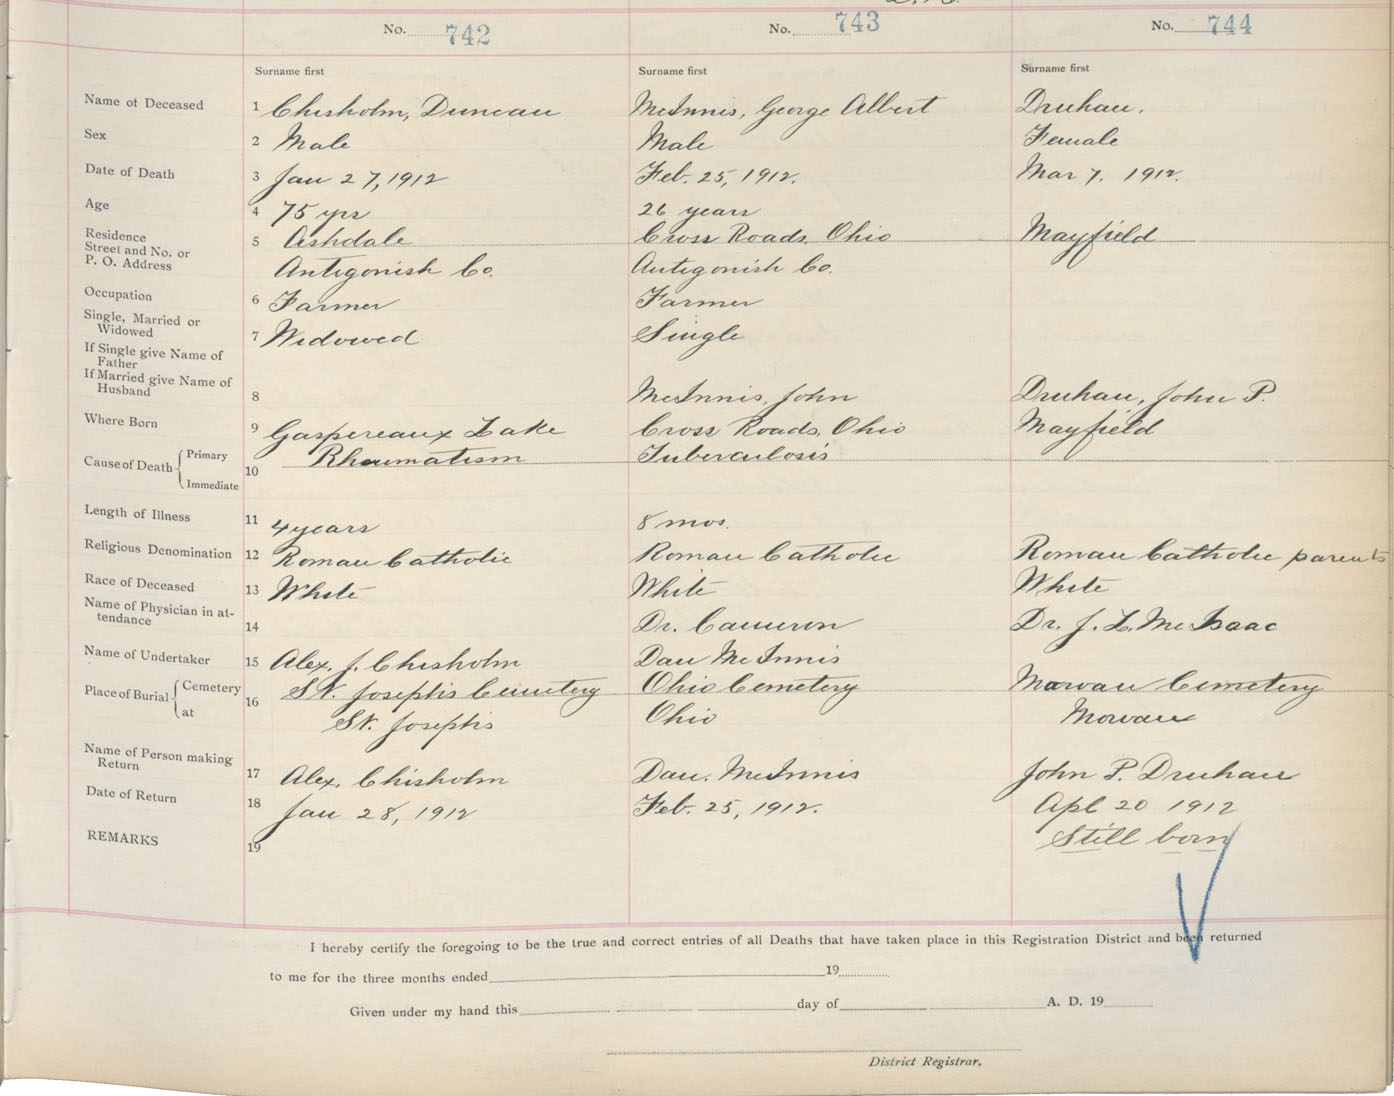 No. 742 No. 743 No. 744
Surname first Surname first Surname first
Name of Deceased 1 Chisholm, Duncan McInnis, George Albert Druhan.
Sex 2 Male Male Female
Date of Death 3 Jan 27, 1912 Feb. 25, 1912. Mar 7. 1912.
Age 4 75 yrs 26 years
Residence
Street and No. or 5 Ashdale Cross Roads, Ohio Mayfield
P. O. Address Antigonish Co. Antigonish Co.
Occupation 6 Farmer Farmer
Single, Married or
Widowed 7 Widowed Single
If Single give Name of
Father
If Married give Name of
Husband 8 McInnis, John Druhan, John P.
Where Born 9 Gaspereaux Lake Cross Roads, Ohio Mayfield
Cause of Death Primary Rheumatism Tuberculosis
Immediate 10
Length of Illness 11 4 years 8 mos.
Religious Denomination 12 Roman Catholic Roman Catholic Roman Catholic parents
Race of Deceased 13 White White White
Name of Physician in at-
tendance 14 Dr. Cameron Dr. J. L. McIsaac
Name of Undertaker 15 Alex. J. Chisholm Dan McInnis
Place of Burial Cemetery St. Joseph's Cemetery Ohio Cemetery Morvan Cemetery
at 16 St. Joseph's Ohio Morvan
Name of Person making
Return 17 Alex. Chisholm Dan. McInnis John P. Druhan
Date of Return 18 Jan 28, 1912 Feb. 25, 1912. Apl 20 1912
REMARKS 19 Still born
I hereby certify the foregoing to be the true and correct entries of all Deaths that have taken place in this Registration District and been returned
to me for the three months ended 19
Given under my hand this day of A. D. 19
District Registrar.